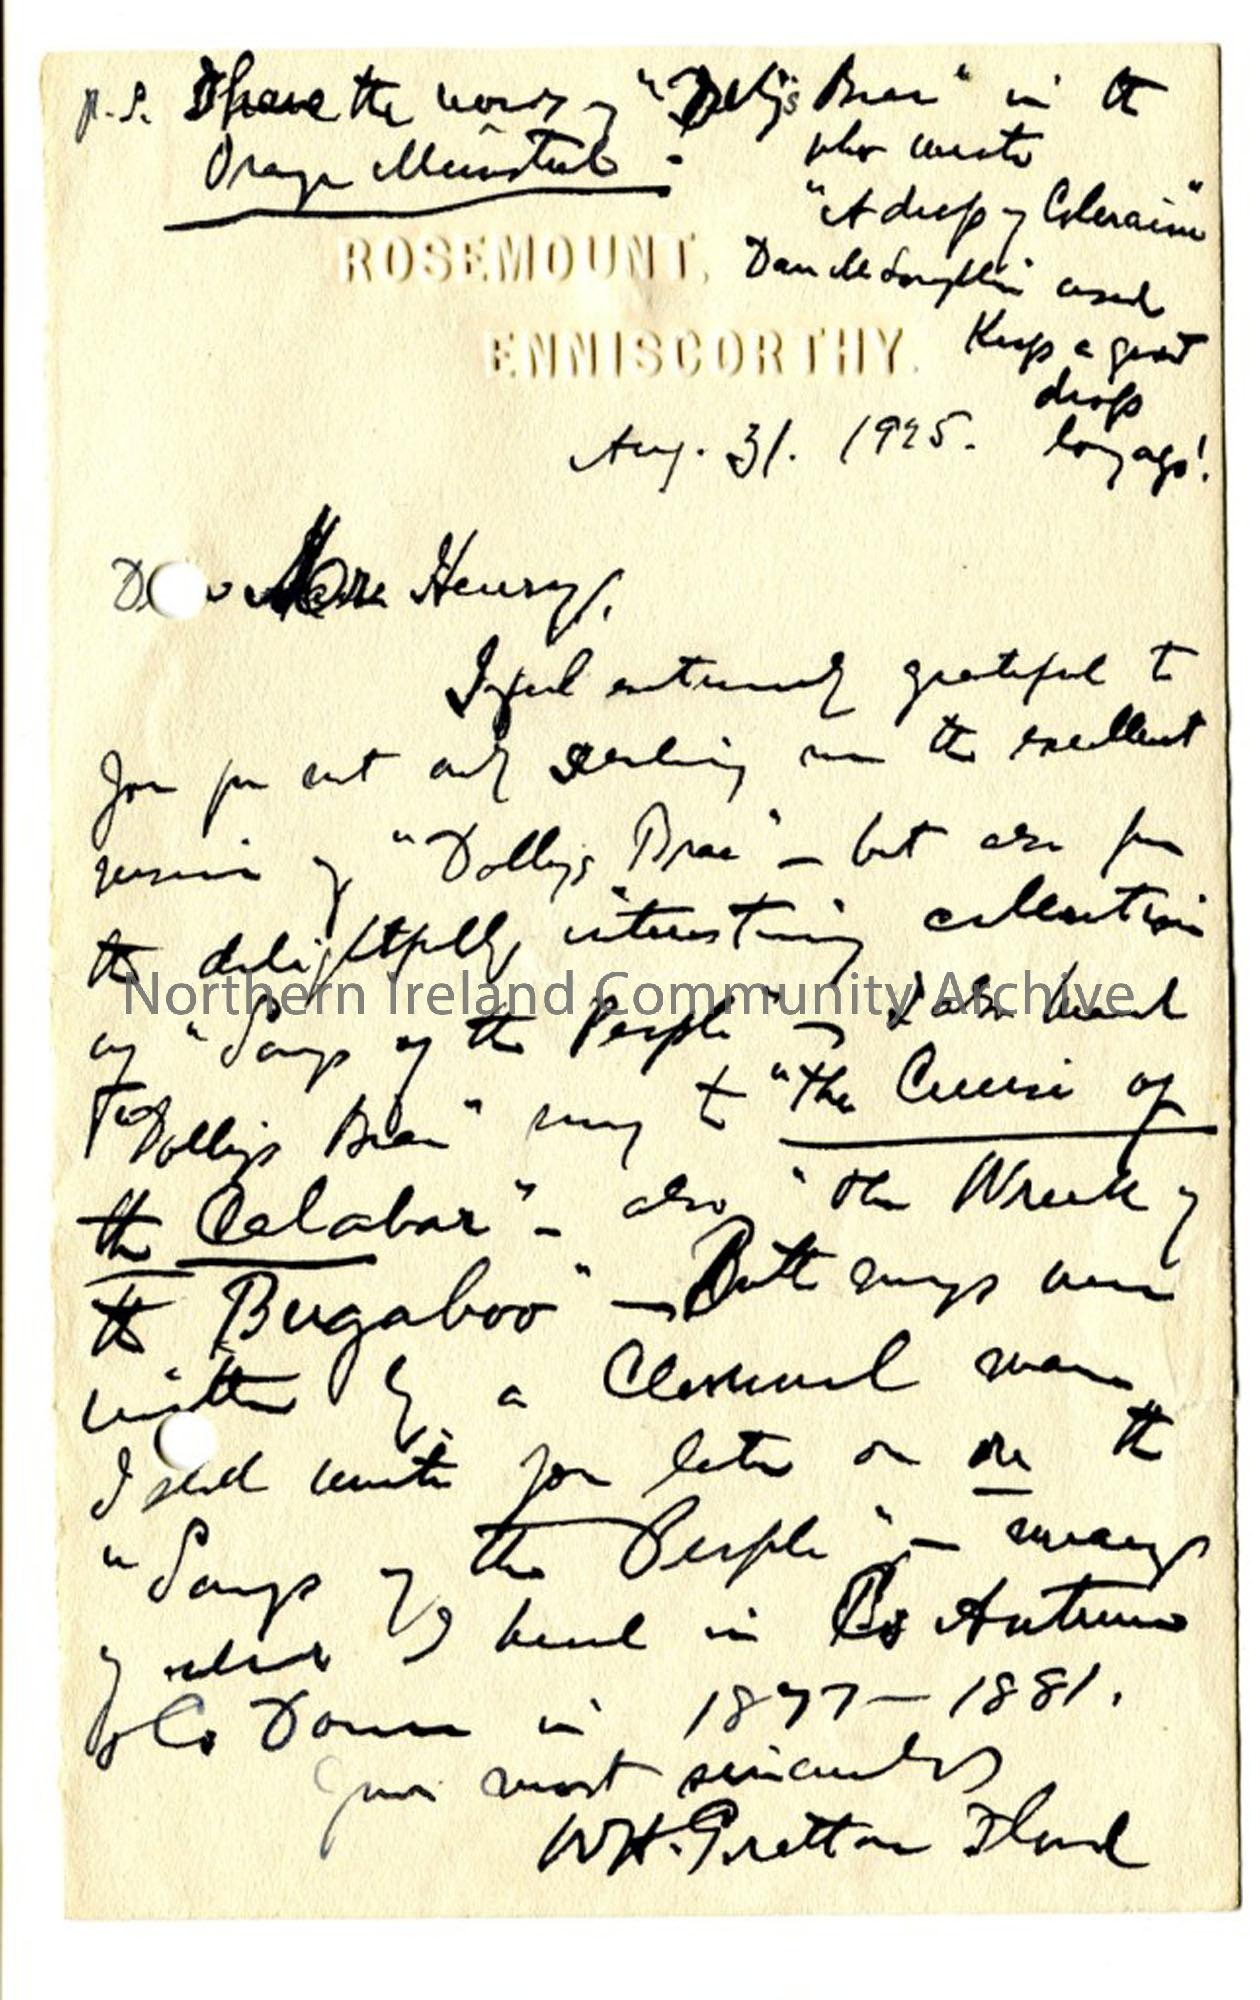 P.S. I have the words of "Dolly's Brae" in the
Orange Minstrel.
who wrote
"A drop of Coleraine"
Dan McLoughlin used
Keep a great
drop
long ago!
ROSEMOUNT,
ENNISCORTHY.
Aug. 31. 1925.
Dear Henry,
I feel extremely grateful to
you for not only sending me the excellent
version of "Dolly's Brae" – but also for
the delightfully interesting collection
of "Songs of the People" – I also heard
"Dolly's Brae" sung to "The Cruise of
the Calabar" – also "The Wreck of
the Bugaboo" – Both songs were
written by a man
I shall write you later on re the
"Songs of the People" – many
of which I heard in Co Antrim
& Co Down in 1877–1881.
Yours most sincerely
W H. Grattan Flood
Northern Ireland Community Archive